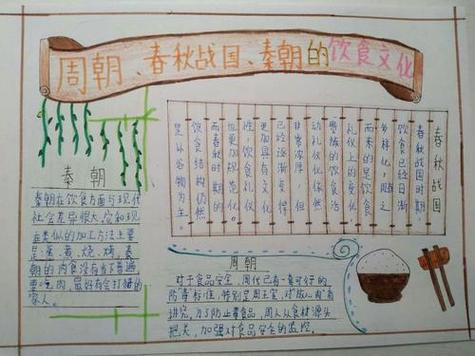 周朝、春秋战国、秦朝的饮食文化
春秋战国
春秋战国时期
饮食已经日渐
多样化，随之
而来的是饮食
礼仪上的变化
繁琐的饮食活
动礼仪依然
非常浓厚，但
已经逐渐变得
更加具有文化
性，饮食礼仪
也更加规范化。
而春秋时期的
饮食结构仍然
是以谷物为主
秦朝
秦朝在饮食方面与现代
社会差异很大，它和现
在类似的加工方法主要
是蒸、煮、烧、烤，秦
朝的肉食没有为了普遍
要吃肉，最好有会打猎的
家人。
周朝
对于食品安全，周代已有一套可行的
防毒标准，特别是周王室，对“饭、肉”有
讲究，为了防止毒食品，周人从食材源头
把关，加强对食品安全的监控。